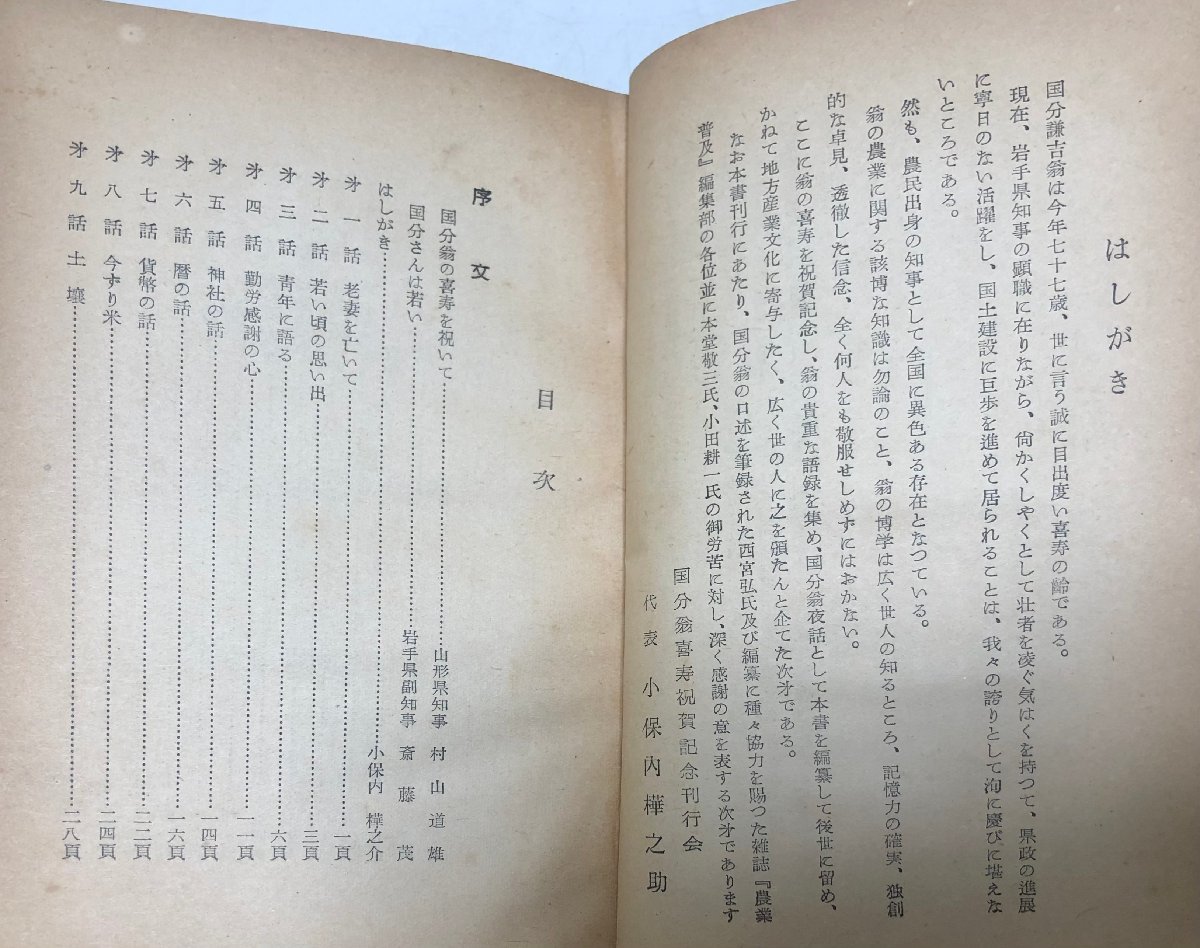 はしがき
国分謙吉翁は今年七十七歳、世に言う誠に目出度い喜寿の齢である。
現在、岩手県知事の顕職に在りながら、尙かくしやくとして壮者を凌ぐ気はくを持つて、県政の進展
に寧日のない活躍をし、国土建設に巨歩を進めて居られることは、我々の誇りとして洵に慶びに堪えな
いところである。
然も、農民出身の知事として全国に異色ある存在となつている。
翁の農業に関する該博な知識は勿論のこと、翁の博学は広く世人の知るところ、記憶力の確実、独創
的な卓見、透徹した信念、全く何人をも敬服せしめずにはおかない。
ここに翁の喜寿を祝賀記念し、翁の貴重な語録を集め、国分翁夜話として本書を編纂して後世に留め、
かねて地方産業文化に寄与したく、広く世の人に之を頒たんと企てた次才である。
なお本書刊行にあたり、国分翁の口述を筆録された西宮弘氏及び編纂に種々協力を賜つた雑誌『農業
普及』編集部の各位並に本堂敬三氏、小田耕一氏の御労苦に対し、深く感謝の意を表する次才であります
国分翁喜寿祝賀記念刊行会
代表 小保內樺之助
目次
序文
国分翁の喜寿を祝いて……山形県知事 村山道雄
国分さんは若い……岩手県副知事 斎藤茂
はしがき……小保内樺之介
才一話 老妻を亡いて……一頁
才二話 若い頃の思い出……三頁
才三話 青年に語る……六頁
才四話 勤労感謝の心……一一頁
才五話 神社の話……一四頁
才六話 暦の話……一六頁
才七話 貨幣の話……二二頁
才八話 今ずり米……二四頁
才九話 土壌……二八頁